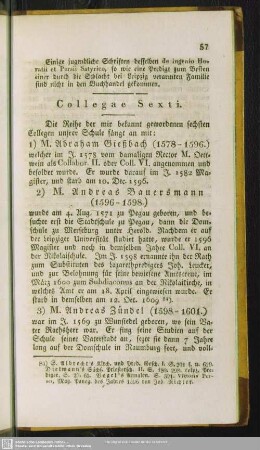 57
Einige jugendliche Schriften desselben de ingenio Horatii et Persii Satyrico, so wie eine Predigt zum Besten
einer durch die Schlacht bei Leipzig verarmten Familie
sind nicht in den Buchhandel gekommen.
Collegae Sexti.
Die Reihe der mir bekannt gewordenen sechsten
Collegen unsrer Schule fängt an mit:
1) M. Abraham Gießbach (1578-1596.)
welcher im J. 1578 vom damaligen Rector M. Oettwein als Collabor. II. oder Coll. VI. angenommen und
besoldet wurde. Er wurde darauf im J. 1582 Magister, und starb am 10. Dec. 1596.
2) M. Andreas Bauersmann
(1596-1598.)
wurde am 4. Aug. 1571 zu Pegau geboren, und besuchte erst die Stadtschule zu Pegau, dann die Domschule zu Merseburg unter Herold. Nachdem er auf
der leipziger Universität studirt hatte, wurde er 1596
Magister und noch in demselben Jahre Coll. VI. an
der Nikolaischule. Im J. 1598 ernannte ihn der Rath
zum Substituten des lazarethpredigers Joh. Leuder,
und zur Belohnung für seine bewiesene Amtstreue, im
März 1600 zum Subdiaconus an der Nikolaikirche, in
welches Amt er am 28. April eingewiesen wurde. Er
starb in demselben am 12. Oct. 1609
3) M. Andreas Zündel (1598-1601.)
war im J. 1569 zu Wunsiedel geboren, wo sein Vater Rathsherr war. Er fing seine Studien auf der
Schule seiner Vaterstadt an, setzte sie dann 7 Jahre
lang auf der Domschule in Naumburg fort, und voll-